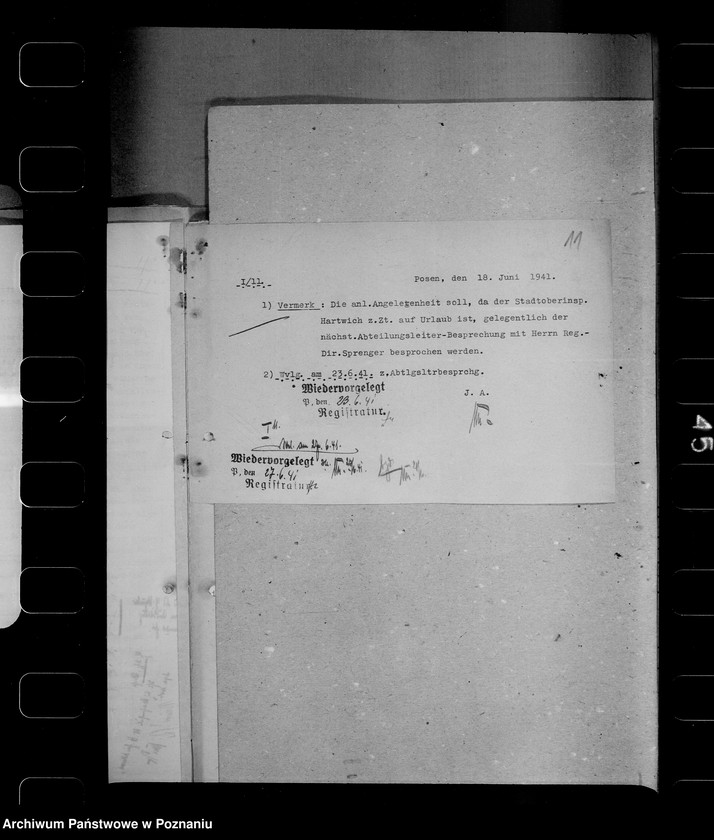 11
I/11.
Posen, den 18. Juni 1941.
1) Vermerk : Die anl.Angelegenheit soll, da der Stadtoberinsp.
Hartwich z.Zt. auf Urlaub ist, gelegentlich der
nächst.Abteilungsleiter-Besprechung mit Herrn Reg.-
Dir.Sprenger besprochen werden.
2) Wvlg. am 23.6.41. z.Abtlgsltrbesprchg.
Wiedervorgelegt
P, den 23.6.41
Registratur.
J. A.
I 11.
Wiedervorgelegt
P, den 27.6.41
Registratur
45
Archiwum Państwowe w Poznaniu